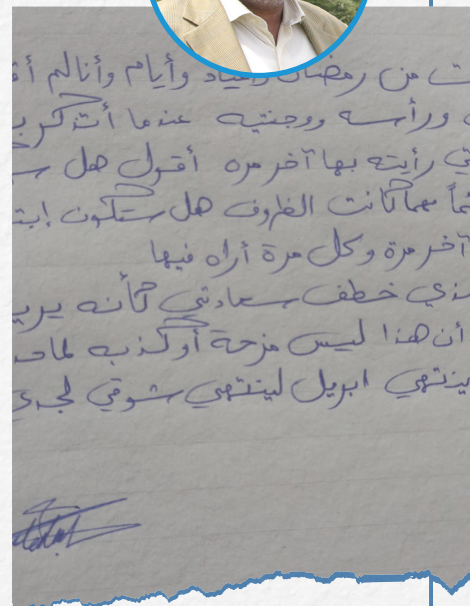 ت من رمضان وأعياد وأيام وأنا لم أق
ورأسه ووجنتيه عندما أتذكر ب
تي رأيته بها آخر مره أقول هل س
ماً مهما كانت الظروف هل ستكون إبت
آخر مرة وكل مرة أراه فيها
ذي خطف سعادتي كأنه يري
أن هذا ليس مزحة أو كذبه لماحد
ينتهي ابريل لينتهي شوقي لجدي